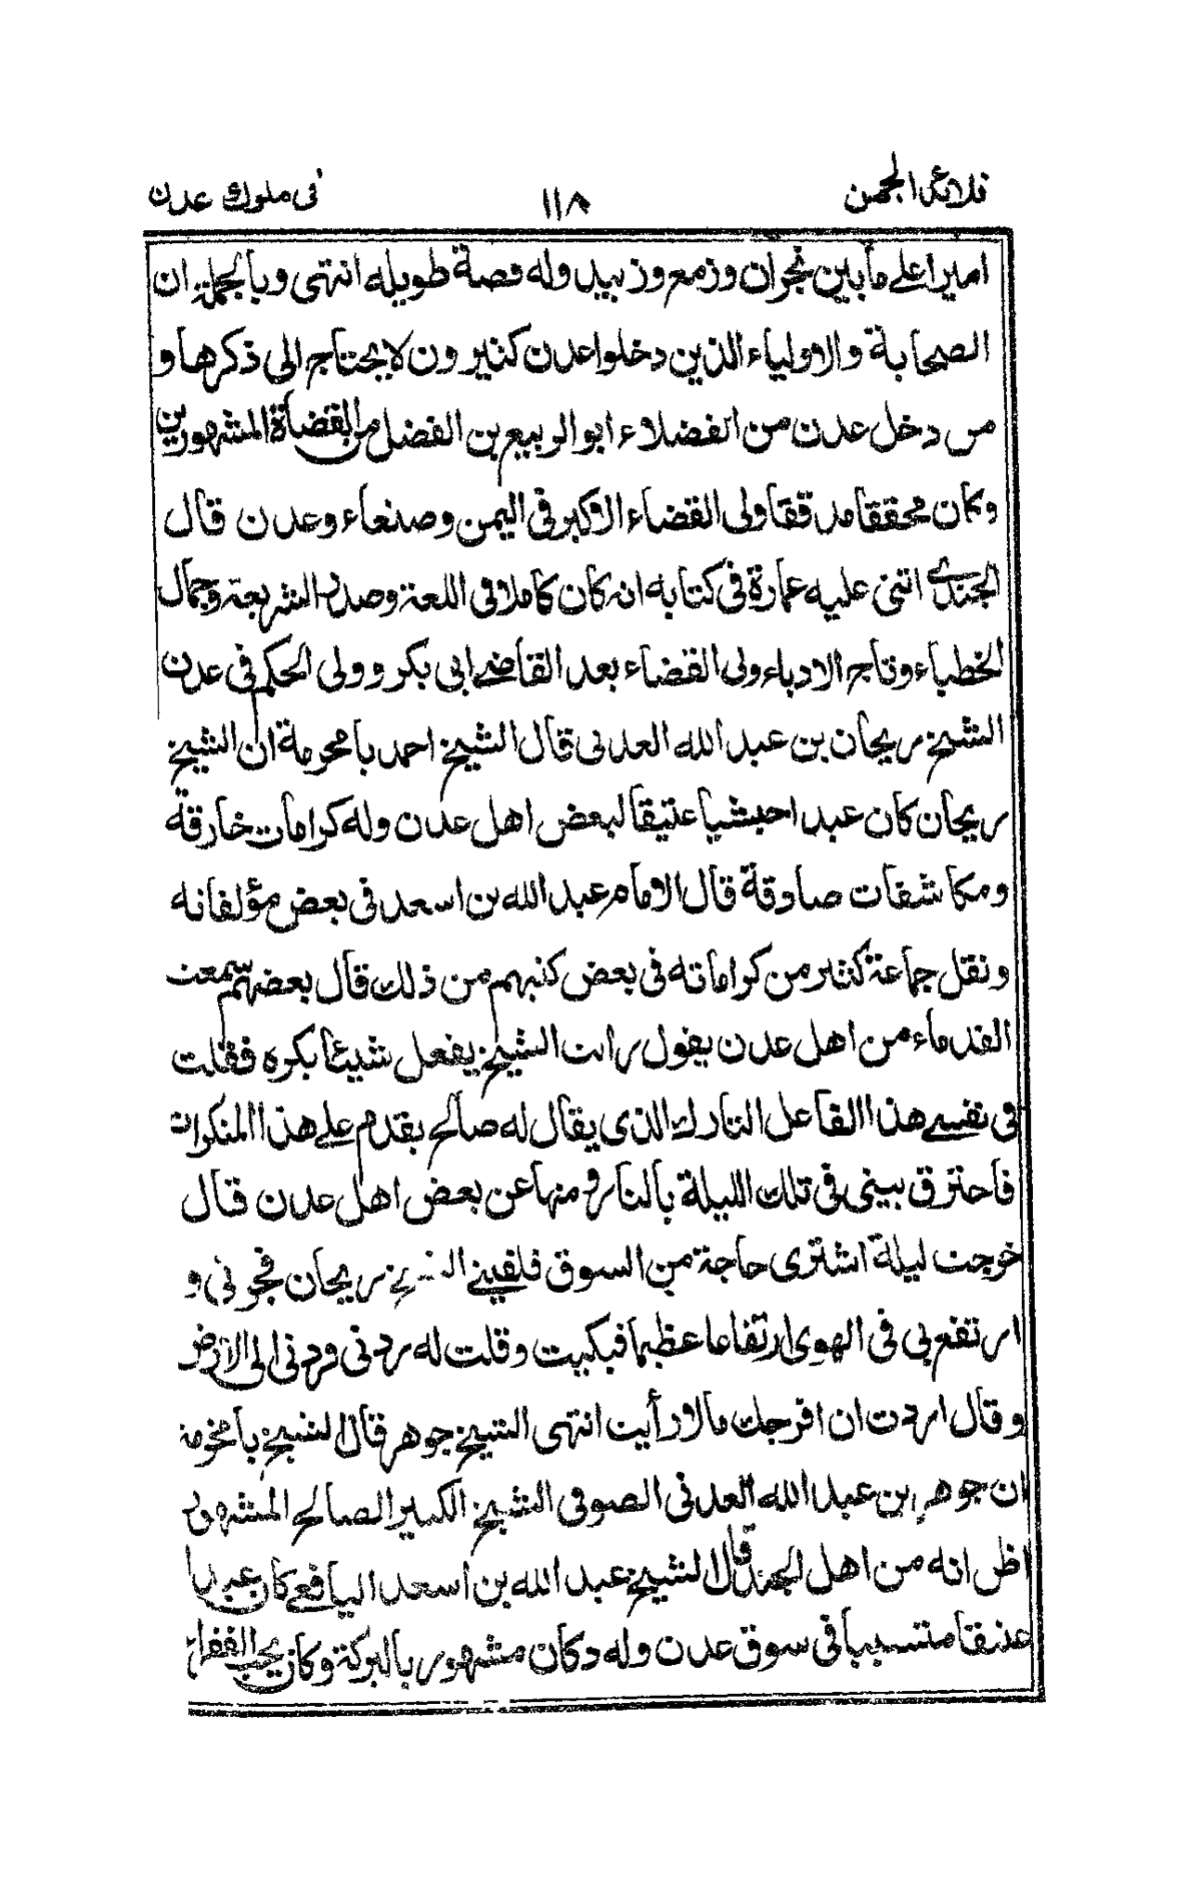 قلائد الجمن ١١٨ فى ملوك عدن
اميرا على مابين نجران وزمع وزبيد وله قصة طويله انتهى وبالجملة ان
الصحابة والاولياء الذين دخلوا عدن كثيرون لا يحتاج الى ذكرها و
من دخل عدن من الفضلاء ابو الربيع بن الفضل من القضاة المشهورين
وكان محققا مدققا ولى القضاء الاكبر فى اليمن وصنعاء وعدن قال
الجندى اثنى عليه عمارة فى كتابه انه كان كاملا فى اللغة وصدر الشريعة وجمال
الخطباء وتاج الادباء ولى القضاء بعد القاضى ابى بكر وولى الحكم فى عدن
الشيخ ريحان بن عبد الله العدنى قال الشيخ احمد بامحرمة ان الشيخ
ريحان كان عبدا حبشيا عتيقا لبعض اهل عدن وله كرامات خارقة
ومكاشفات صادقة قال الامام عبد الله بن اسعد فى بعض مؤلفاته
ونقل جماعة كثير من كراماته فى بعض كتبهم من ذلك قال بعضهم سمعت
القدماء من اهل عدن يقول رايت الشيخ يفعل شيئا يكره فقلت
فى نفسى هذا الفاعل التارك الذى يقال له صالح يقدم على هذا المنكرات
فاحترق بيتى فى تلك الليلة بالنار ومنها عن بعض اهل عدن قال
خرجت ليلة اشترى حاجة من السوق فلقينى الشيخ ريحان فجرنى و
ارتفع بى فى الهوى ارتفاعا عظيما فبكيت وقلت له ردنى فردنى الى الارض
وقال اردت ان افرجك مالا رأيت انتهى الشيخ جوهر قال الشيخ بامخرمة
ان جوهر بن عبد الله العدنى الصوفى الشيخ الكبير الصالح المشهور
اظن انه من اهل الجند قال الشيخ عبد الله بن اسعد اليافعى كان عبدا
عتيقا متسببا فى سوق عدن وله دكان مشهور بالبركة وكان يحب الفقراء